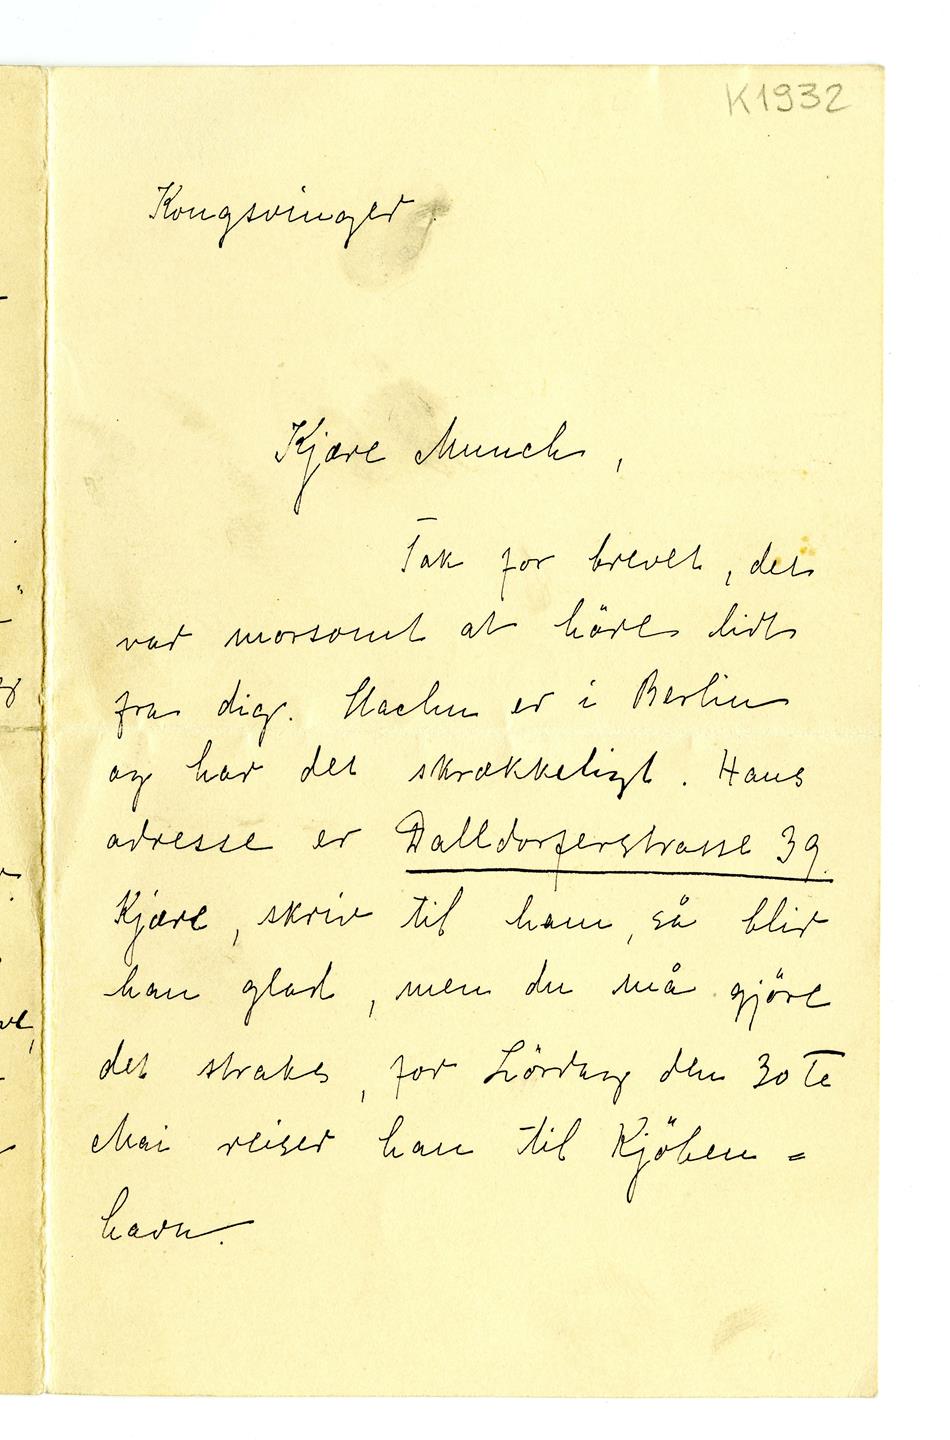 K1932
Kongsvinger.
Kjære Munch,
Tak for brevet, det
var morsomt at höre lidt
fra dig. Stachu er i Berlin
og har det skrækkeligt. Hans
adresse er Dalldorferstrasse 39.
Kjære, skriv til ham, så blir
han glad, men du må gjöre
det straks, for Lördag den 30te
Mai reiser han til Kjöben=
havn.